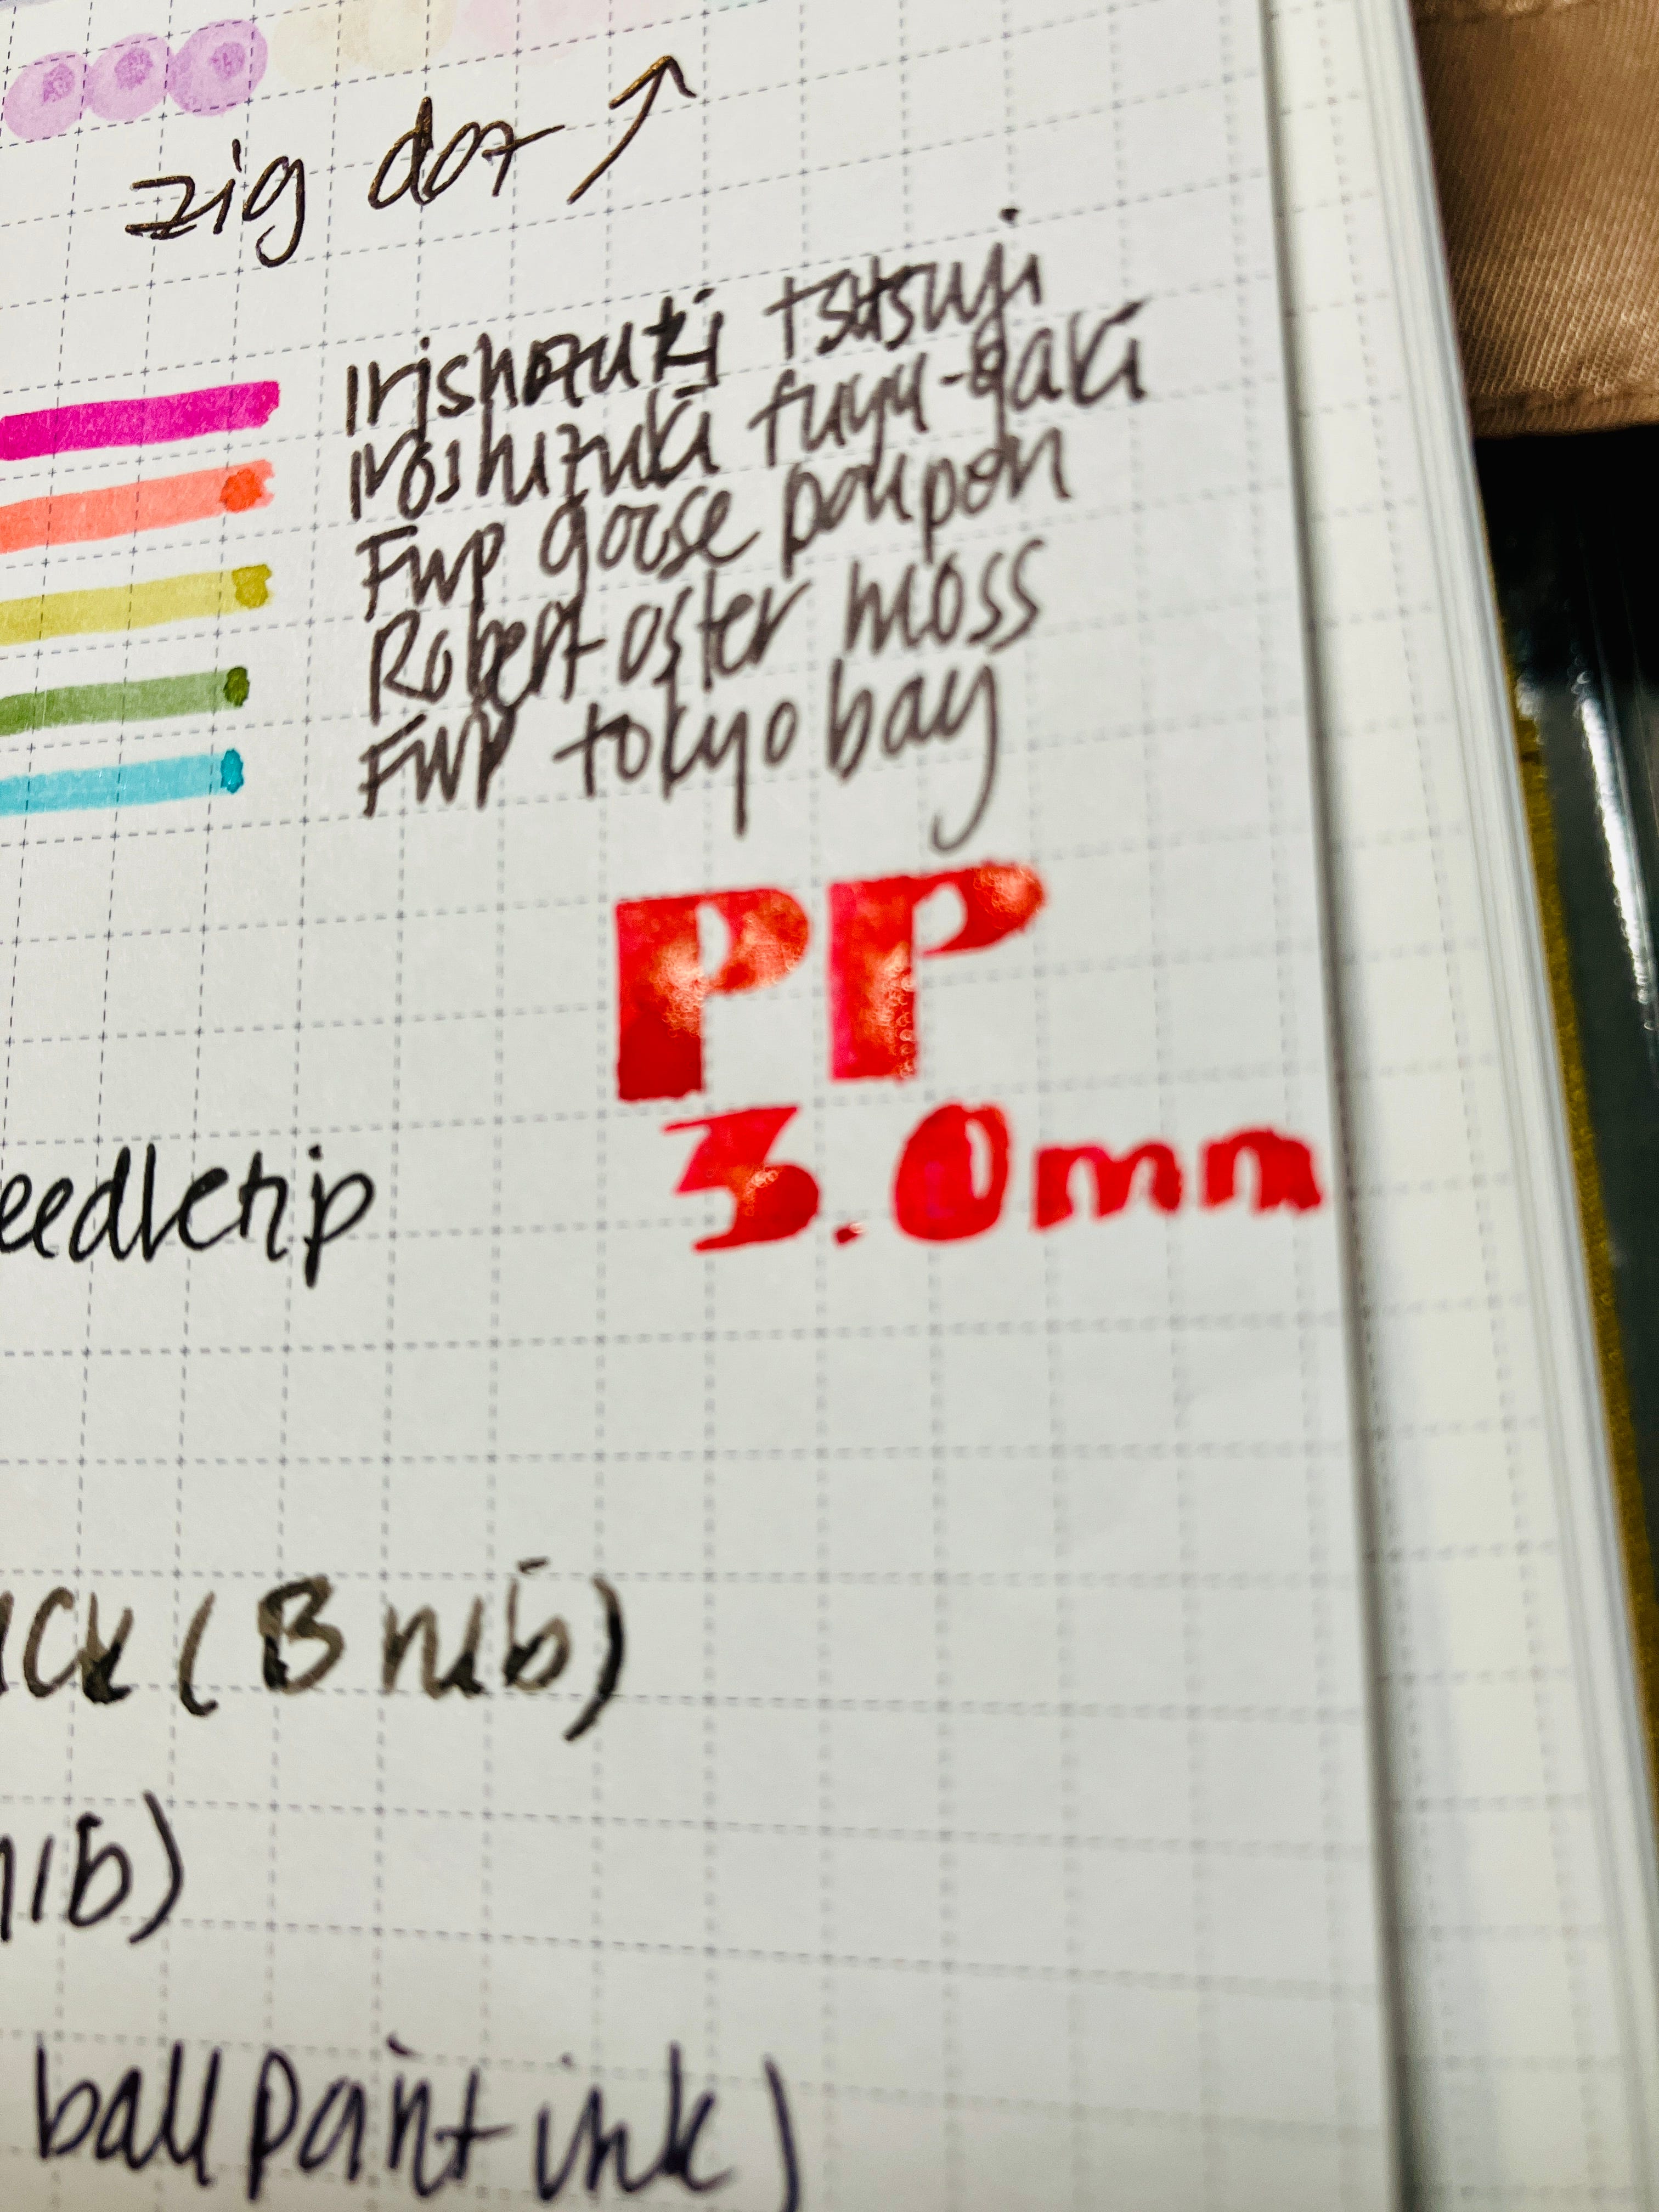 zig dot ↗
Irishozuki tsutsuji
Iroshizuki fuyu-gaki
FWP goose poupon
Robert oster moss
FWP tokyo bay
PP
3.0mm
eedletip
ck (B nib)
nib)
ballpoint ink)